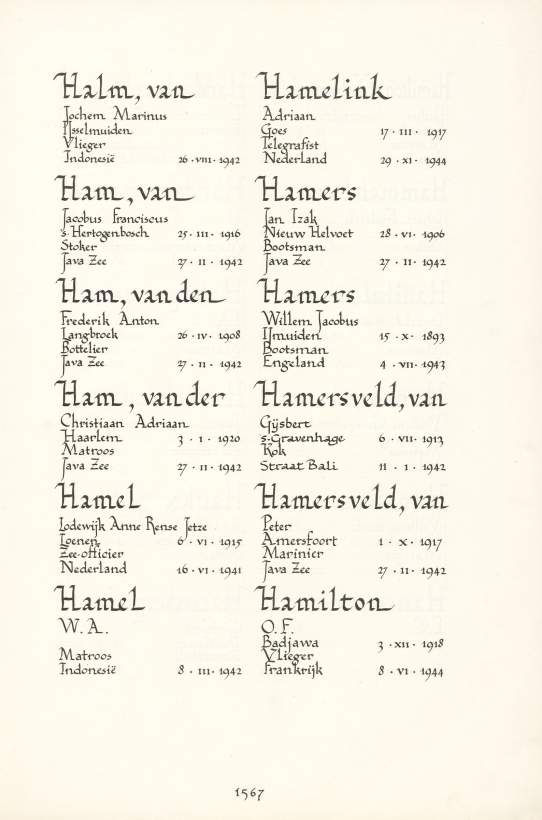 Halm, van
Jochem Marinus
IJsselmuiden
Vlieger
Indonesië 26 · VIII · 1942
Ham, van
Jacobus Franciscus
's-Hertogenbosch 25 · III · 1916
Stoker
Java Zee 27 · II · 1942
Ham, van den
Frederik Anton
Langbroek 26 · IV · 1908
Bottelier
Java Zee 27 · II · 1942
Ham, van der
Christiaan Adriaan
Haarlem 3 · I · 1920
Matroos
Java Zee 27 · II · 1942
Hamel
Lodewijk Anne Rense Jetze
Loenen 6 · VI · 1915
Zee-officier
Nederland 16 · VI · 1941
Hamel
W. A.
Matroos
Indonesië 8 · III · 1942
Hamelink
Adriaan
Goes 17 · III · 1917
Telegrafist
Nederland 29 · XI · 1944
Hamers
Jan Izak
Nieuw Helvoet 28 · VI · 1906
Bootsman
Java Zee 27 · II · 1942
Hamers
Willem Jacobus
IJmuiden 15 · X · 1893
Bootsman
Engeland 4 · VII · 1943
Hamersveld, van
Gijsbert
's-Gravenhage 6 · VII · 1913
Kok
Straat Bali 11 · I · 1942
Hamersveld, van
Peter
Amersfoort 1 · X · 1917
Marinier
Java Zee 27 · II · 1942
Hamilton
O. F.
Badjawa 3 · XII · 1918
Vlieger
Frankrijk 8 · VI · 1944
1567